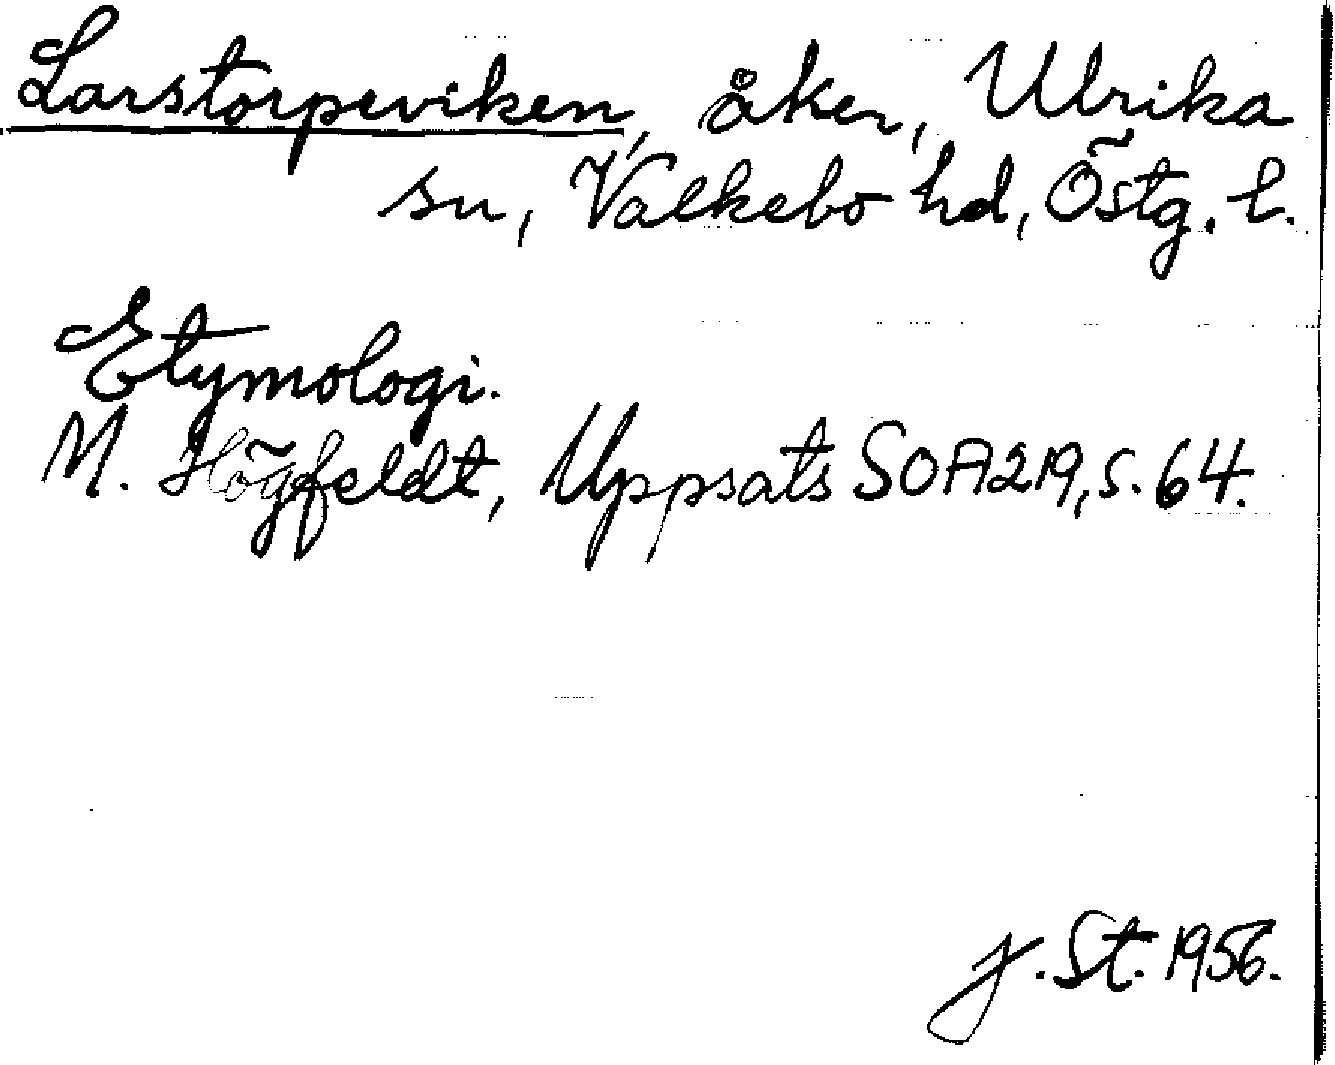 Larstorpeviken, åker, Ulrika
sn, Valkebo hd, Östg. l.
Etymologi.
M. Högfeldt, Uppsats SOA219, s. 64.
J. St. 1956.